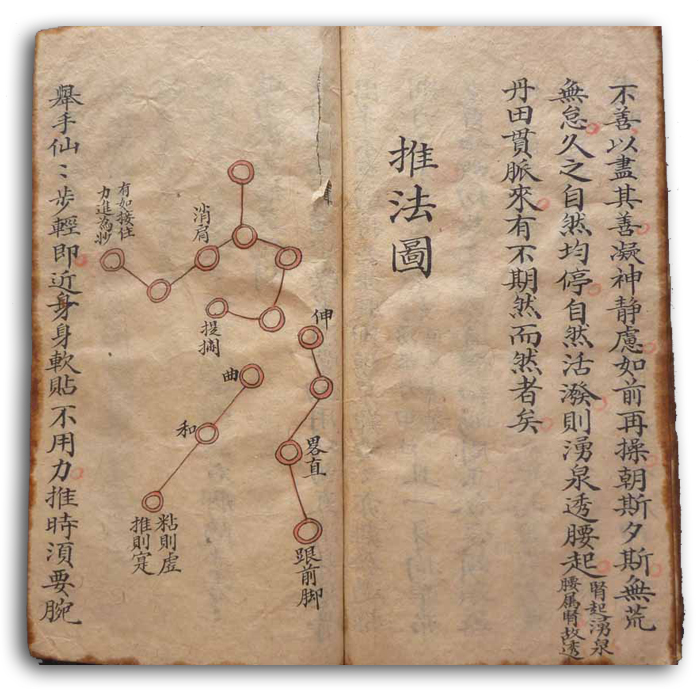 不善以盡其善凝神靜慮如前再操朝斯夕斯無荒
無怠久之自然均停自然活潑則湧泉透腰起
腎起湧泉
腰属腎故透
丹田貫脈來有不期然而然者矣
推法圖
伸
畧直
跟前脚
曲
和
粘則虛
推則寔
提掤
消肩
有如接住
力進為妙
舉手仙〻步輕即近身身軟貼不用力推時須要腕